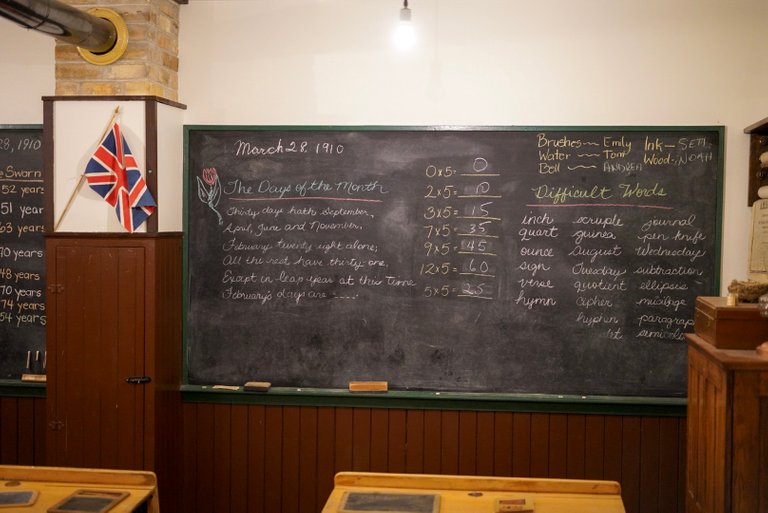 28, 1910
Sworn
52 years
51 year
63 years
70 years
48 years
70 years
74 years
54 years
March 28, 1910
The Days of the Month
Thirty days hath September,
April, June and November,
February twenty eight alone;
All the rest have thirty-one.
Except in leap-year at this time
February's days are
0x5= 0
2x5= 10
3x5= 15
7x5= 35
9x5= 45
12x5= 60
5x5= 25
Brushes Emily Ink SETH
Water Tom Wood NOAH
Bell ANDREA
Difficult Words
inch scruple journal
quart guinea pen knife
ounce August Wednesday
sign Tuesday subtraction
verse quotient ellipses
hymn cipher
hyphen paragrap
semicolo